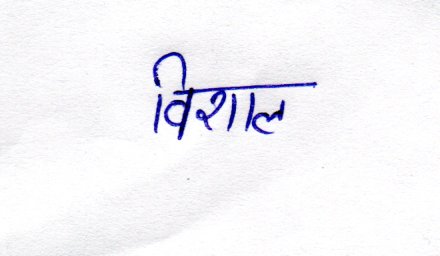 विशाल